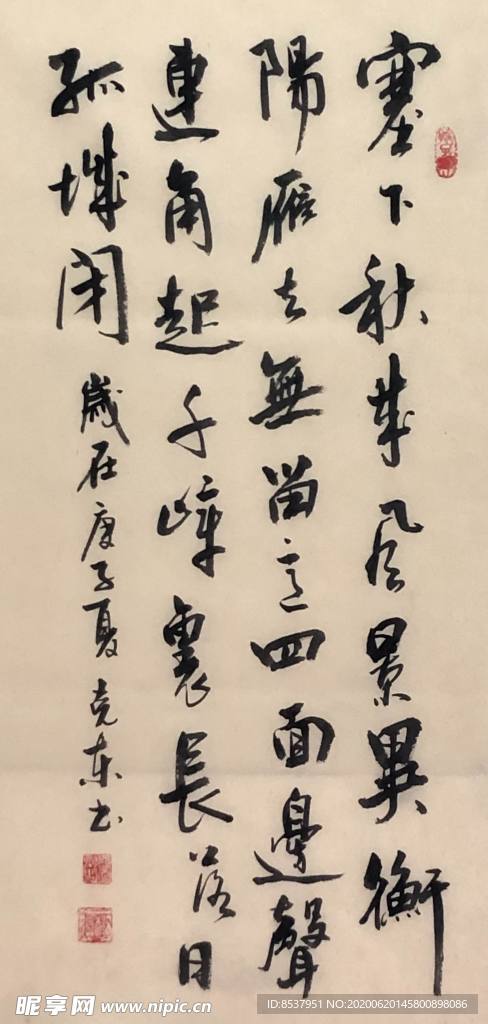 塞下秋来风景异衡
陽雁去無留意四面邊聲
連角起千嶂裏長落日
孤城閉
歲在庚子夏克東书
昵享网 www.nipic.cn
ID:8537951 NO:20200620145800898086